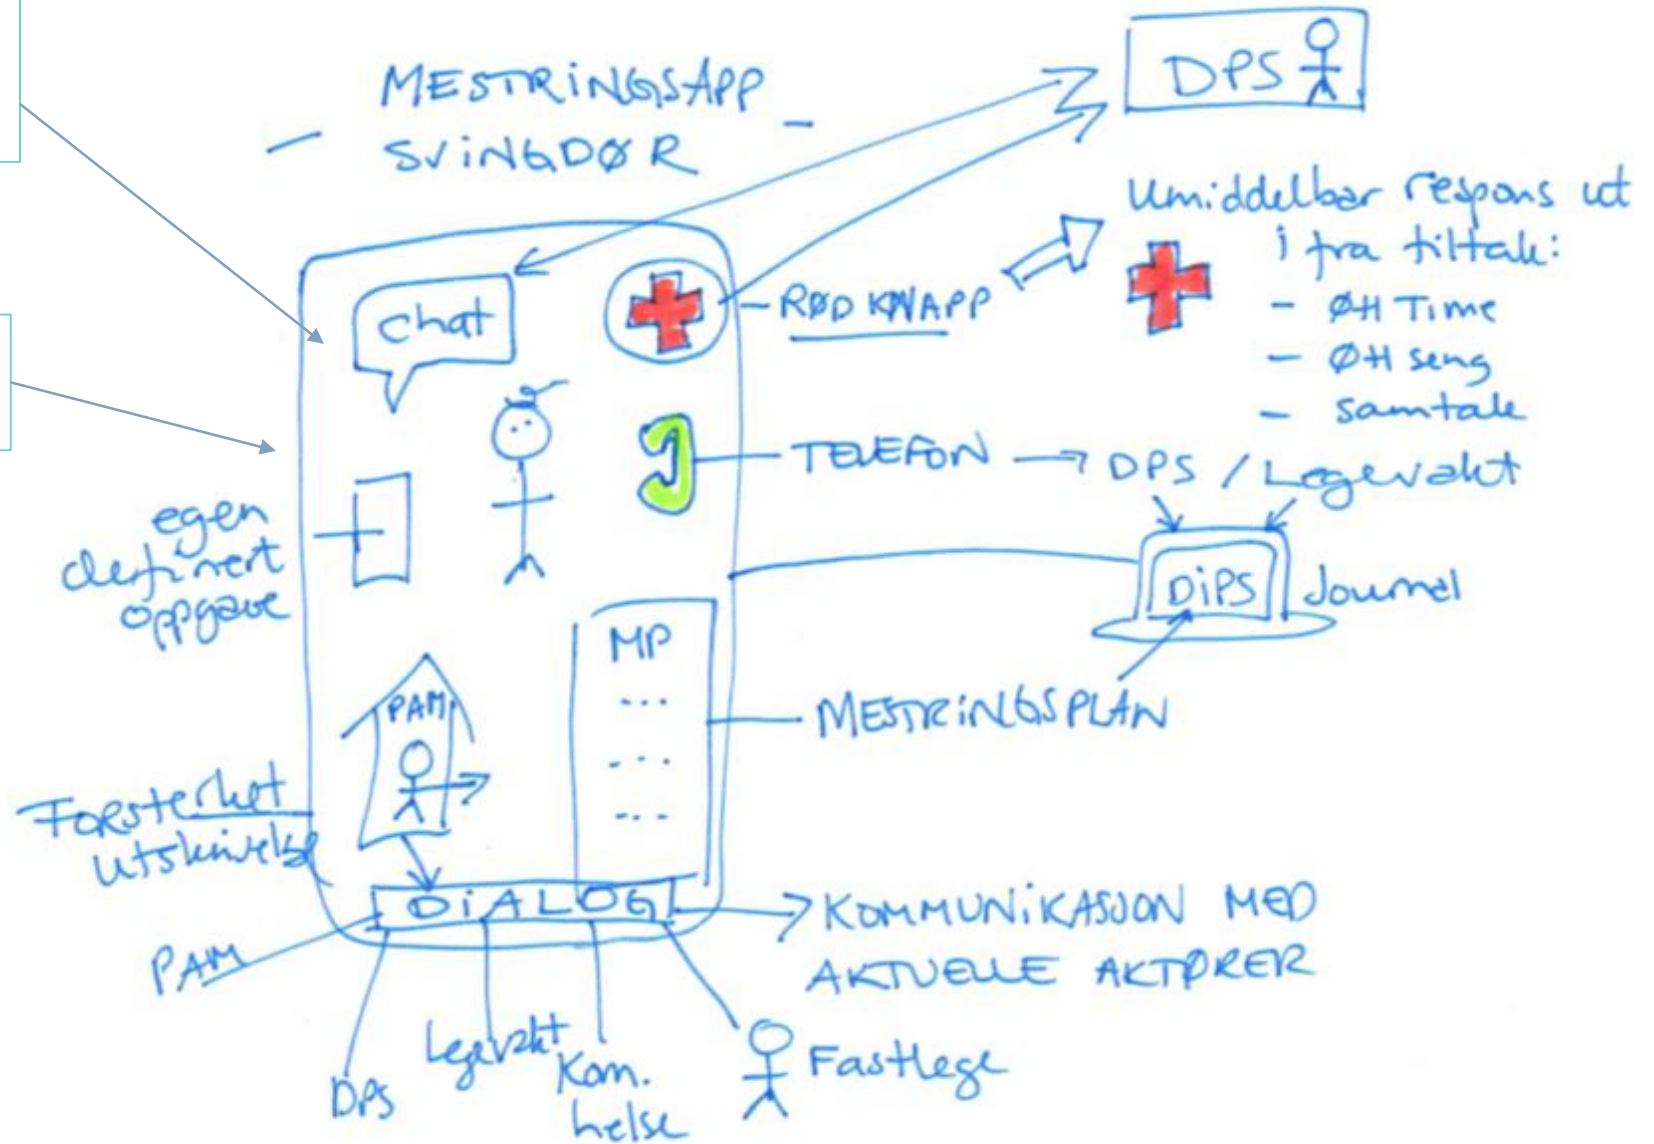 MESTRINGSAPP
SVINGDØR
DPS
Umiddelbar respons ut
i fra tiltak:
- ØH Time
- ØH seng
- samtale
chat
- RØD KNAPP
TELEFON → DPS / Legevakt
DiPS Journal
egen
definert
oppgave
MP
...
...
...
MESTRINGSPLAN
PAM
Forsterket
utskrivelse
DIALOG
KOMMUNIKASJON MED
AKTUELLE AKTØRER
PAM
DPS
Legevakt
Kom.
helse
Fastlege